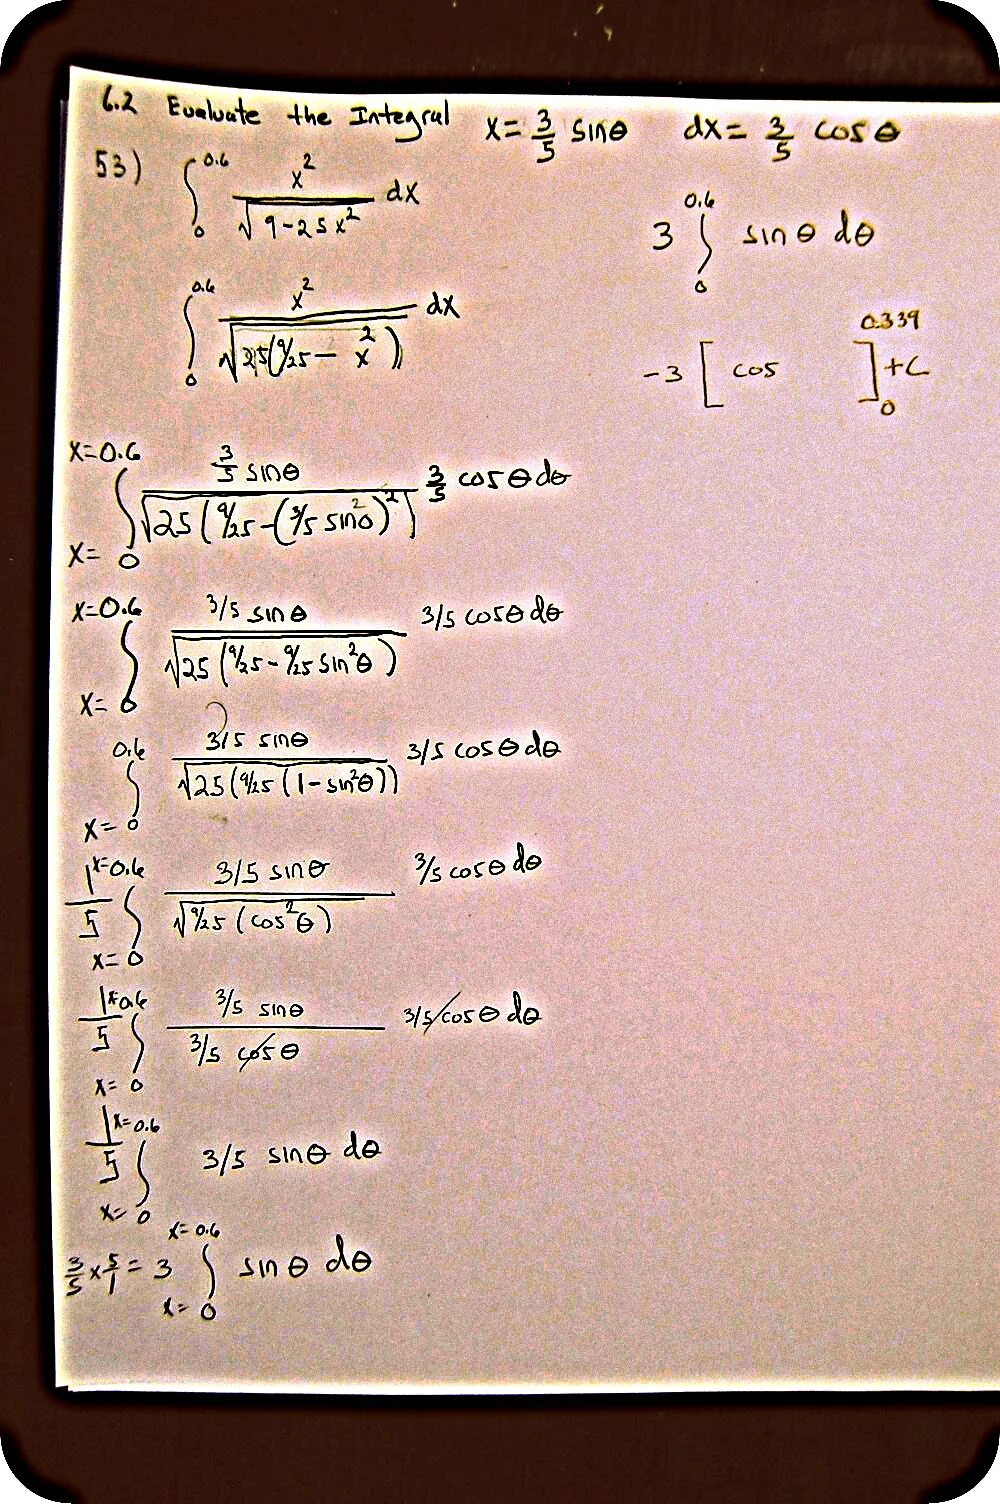 6.2 Evaluate the Integral
x = 3/5 sinθ dx = 3/5 cosθ
53) ∫₀^0.6 x²/√(9-25x²) dx
∫₀^0.6 x²/√(25(9/25 - x²)) dx
∫_{x=0}^{x=0.6} (3/5 sinθ)/√(25(9/25 - (3/5 sin²θ)²)) 3/5 cosθ dθ
∫_{x=0}^{x=0.6} (3/5 sinθ)/√(25(9/25 - 9/25 sin²θ)) 3/5 cosθ dθ
∫_{x=0}^{0.6} (3/5 sinθ)/√(25(9/25(1-sin²θ))) 3/5 cosθ dθ
1/5 ∫_{x=0}^{x=0.6} (3/5 sinθ)/√(9/25(cos²θ)) 3/5 cosθ dθ
1/5 ∫_{x=0}^{x=0.6} (3/5 sinθ)/(3/5 cosθ) 3/5 cosθ dθ
1/5 ∫_{x=0}^{x=0.6} 3/5 sinθ dθ
3/5 × 5/1 = 3 ∫_{x=0}^{x=0.6} sinθ dθ
3 ∫₀^0.6 sinθ dθ
-3 [cos ]₀^0.339 + C